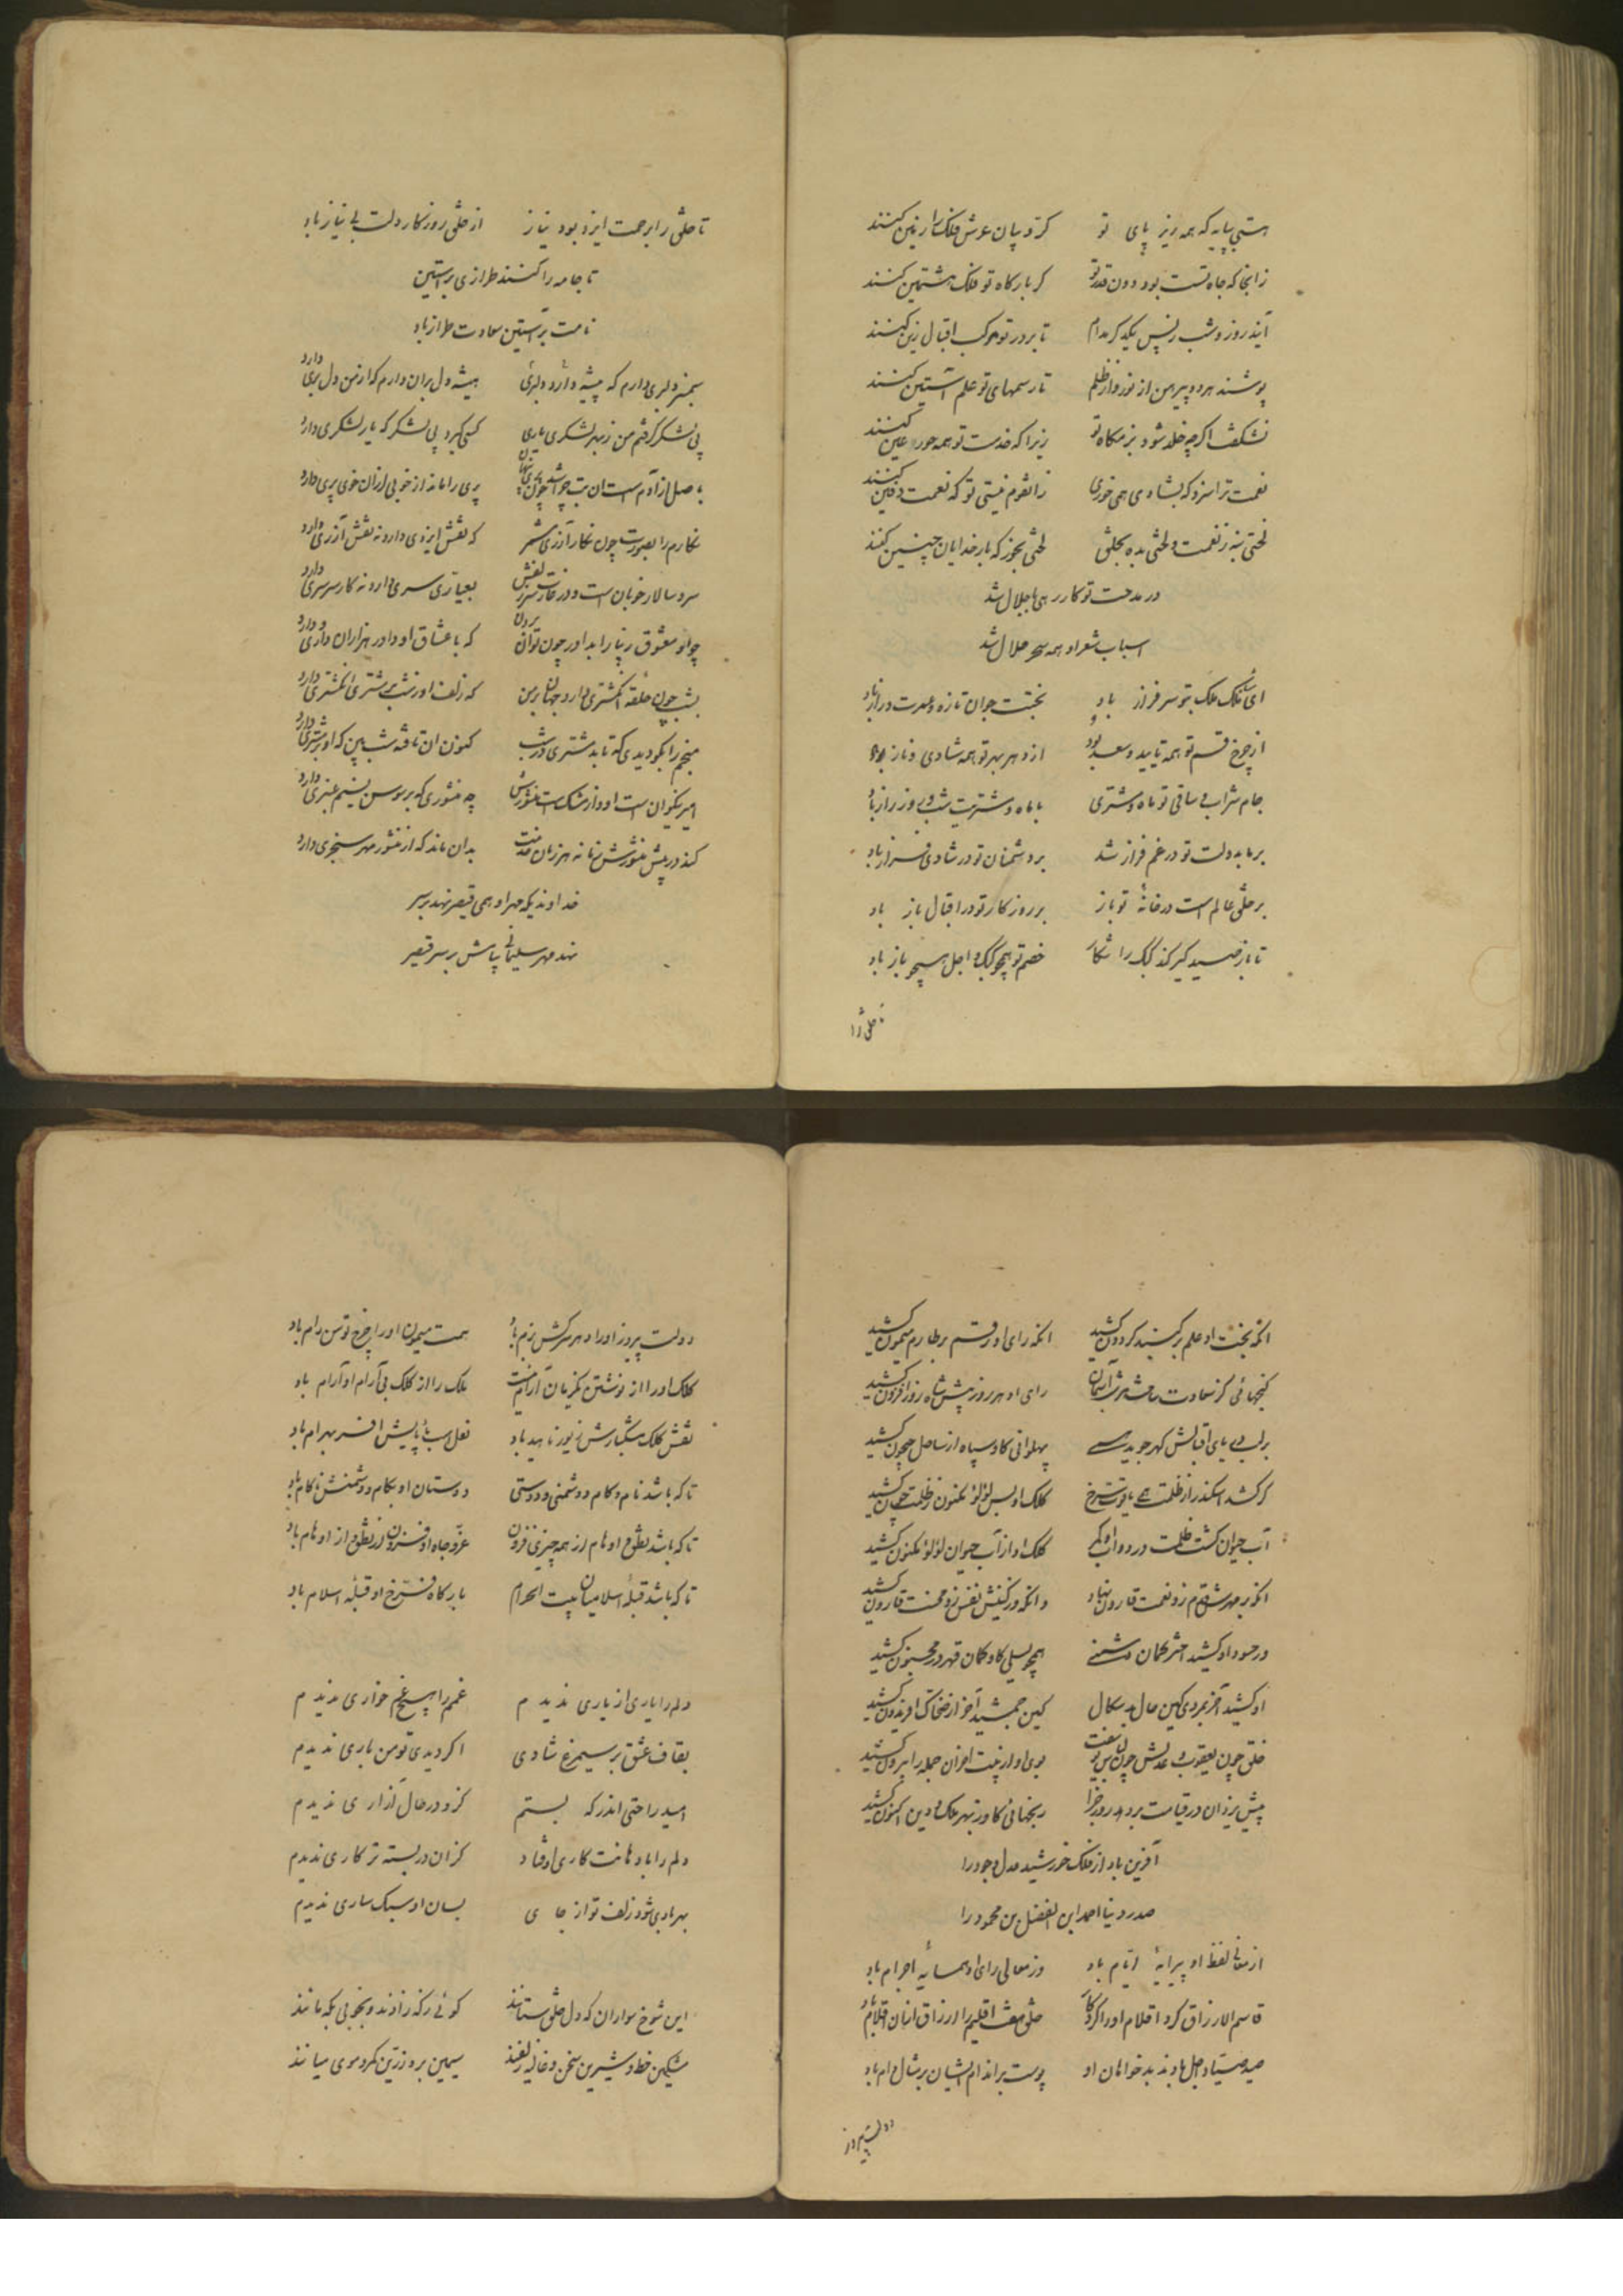 هستی بپایه که همه زیر پای تو کروبیان عرش فلک را زمین کنند
زانجا که جاه تست بود دون قدر تو گر بارگاه تو فلک هشتمین کنند
آیند روز و شب ز پس یکدگر مدام تا بر در تو مرکب اقبال زین کنند
پوشند هر دو پیرهن از نور و از ظلم تا رسمهای تو علم آستین کنند
نشگفت اگر چه خلد شود بزمگاه تو زیرا که خدمت تو همه حور عین کنند
نعمت ترا سزد که بشادی همی خوری زانقوم نیستی تو که نعمت دفین کنند
لختی بنه ز نعمت و لختی بده بخلق لختی بخور که بارخدایان چنین کنند
در مدحت تو کار رهی با جلال شد
اسباب شعر او همه سحر حلال شد
ای ملک ملک بتو سرفراز باد بختت جوان تازه و عمرت دراز باد
از چرخ قسم تو همه تایید و سعد بود از دهر بهر تو همه شادی و ناز باد
جام شراب و ساقی تو ماه و مشتری با ماه و مشتریت شب و روز راز باد
بر ما بدولت تو در غم فراز شد بر دشمنان تو در شادی فراز باد
بر خلق عالم است در خانهٔ تو باز بر روزگار تو در اقبال باز باد
تا باز صیدگیر کند کبک را شکار خصم تو همچو کبک و اجل همچو باز باد
تا خلق را
تا خلق را برحمت ایزد بود نیاز از خلق روزگار دلت بی نیاز باد
تا جامه را کنند طرازی بر آستین
نامت بر آستین سعادت طراز باد
سمنبر دلبری دارم که پیشه دارد دلبری همیشه دل بران دارم که از من دل بری دارد
پی لشکر گرفتم من ز بهر لشکری یاری کسی گیرد پی لشکر که یار لشکری دارد
باصل از آدم است آن بت چو چون پری پنهان پری را ماند از خوبی ازان خوی پری دارد
نگارم را بصورت چون نگار آزری مشمر که نقش ایزدی دارد نه نقش آزری دارد
سر و سالار خوبان است و در بعیاری سری دارد نه کار سرسری دارد
چو او معشوق زیبا را بداور چون توان بردن که با عشاق او داور هزاران داوری دارد
بشب چون حلقه انگشتری دارد جهان بر من که زلف او ز شب بر مشتری انگشتری دارد
منجم را بگو دیدی که تابد مشتری در شب کنون آن تافته شب بین که او بر مشتری دارد
امیر نیکوان است او و از مشک است منشورش چه منشوری که بر سوسن نسیم عنبری دارد
کند در پیش منشورش زمانه هر زمان خدمت بدان ماند که از منشور مهر سنجری دارد
خداوندیکه مهر او همی قیصر نهد بر سر
نهد مهر سلیمانی پیاش بر سر قیصر
آنکه بخت او علم بر گنبد گردون کشید آنکه رای او رقم بر طارم میمون کشید
گنجهائی کز سعادت ساخته بر آسمان رای او هر روز پیش شاه روز افزون کشید
بر لب دریای اقبالش گهر جوید پهلوانی کاو سپاه از ساحل جیحون کشید
گر کشد اسکندر از ظلمت همی یاقوت سرخ کلک او بس لؤلؤ مکنون ز ظلمت چون کشید
آب حیوان گشت ظلمت در دوات او مگر کلک او از آب حیوان لؤلؤ مکنون کشید
آنکه بر مهرش قدم زد نعمت قارون نهاد وانکه در کینش نفس زد محنت قارون کشید
در حسود او کشید اختر کمان دشمنی همچو لیلی کاو کمان قهر در مجنون کشید
او کشید آخر بمردی کین حال بدسگال کین جمشید آخر از ضحاک افریدون کشید
خلق چون یعقوب و عدلش چون بوی او از بیت احزان جمله را بیرون کشید
پیش یزدان در قیامت برد روز جزا رنجهائی کاو ز بهر ملک و دین اکنون کشید
آفرین باد از فلک خورشید عدل و جود را
صدر دنیا احمد ابن الفضل بن محمود را
از معانی لفظ او پیرایهٔ ایام باد وز معالی رای او همسایهٔ اجرام باد
قاسم الارزاق کرد اقلام او را کردگار خلق هفت اقلیم را ارزاق ازان اقلام باد
صید صیاد اجل بادند بدخواهان او پوست بر اندام ایشان بر مثال دام باد
دولت پیروز
دولت پیروز او را دهر سرکش رام باد همت میمون او را چرخ توسن رام باد
کلک او را از نوشتن یکزمان آرام نیست ملک را از کلک بی آرام او آرام باد
نقش کلک مشکبارش زیور ناهید باد نعل اسب بادپایش افسر بهرام باد
تا که باشد نام و کام دشمنی و دوستی دوستان او بکام و دشمنش ناکام باد
تا که باشد نطق و اوهام از همه چیزی فزون عز و جاه او فزون از نطق و از اوهام باد
تا که باشد قبلهٔ اسلامیان بیت الحرام بارگاه فرخ او قبلهٔ اسلام باد
دلم را یاری از یاری ندیدم غمم را هیچ غم خواری ندیدم
بقاف عشق بر سیمرغ شادی اگر دیدی تو من باری ندیدم
امید راحتی اندر که بستم کزو در حال آزاری ندیدم
دلم را با دهانت کاری افتاد کزان در بسته تر کاری ندیدم
بهر بادی شود زلف تو از جای بسان او سبک ساری ندیدم
این شوخ سواران که دل خلق ستانند گوئی ز که زادند و بخوبی بکه مانند
مشکین خط و شیرین سخن و غالیه زلفند سیمین بر و زرین کمر و موی میانند